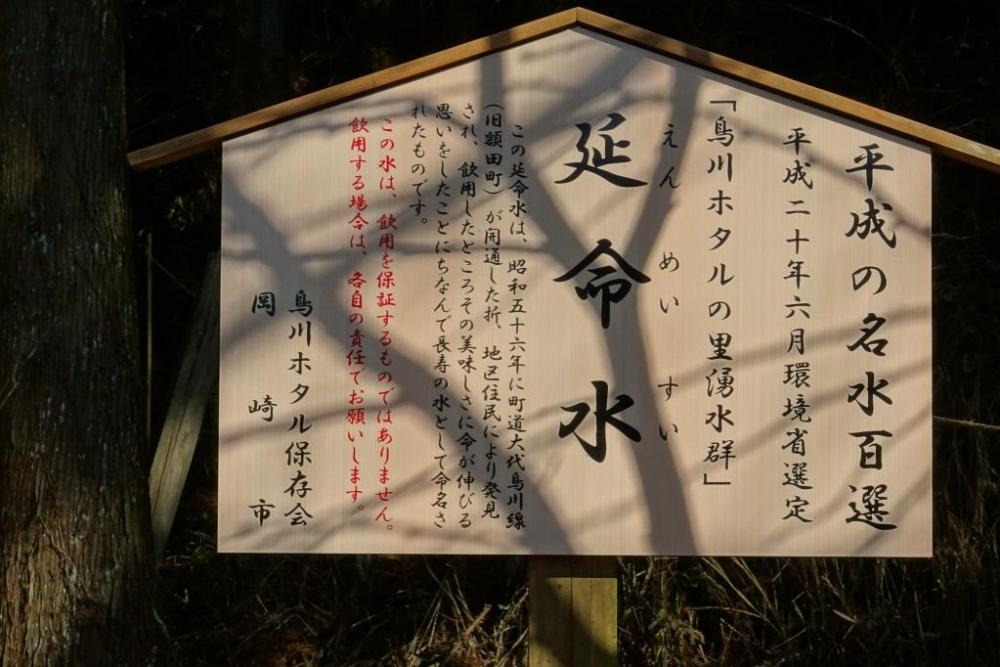 平成の名水百選
平成二十年六月環境省選定
「鳥川ホタルの里湧水群」
えんめいすい
延命水
この延命水は、昭和五十六年に町道大代鳥川線
(旧額田町)が開通した折、地区住民により発見
され、飲用したところその美味しさに命が伸びる
思いをしたことにちなんで長寿の水として命名さ
れたものです。
この水は、飲用を保証するものではありません。
飲用する場合は、各自の責任でお願いします。
鳥川ホタル保存会
岡崎市